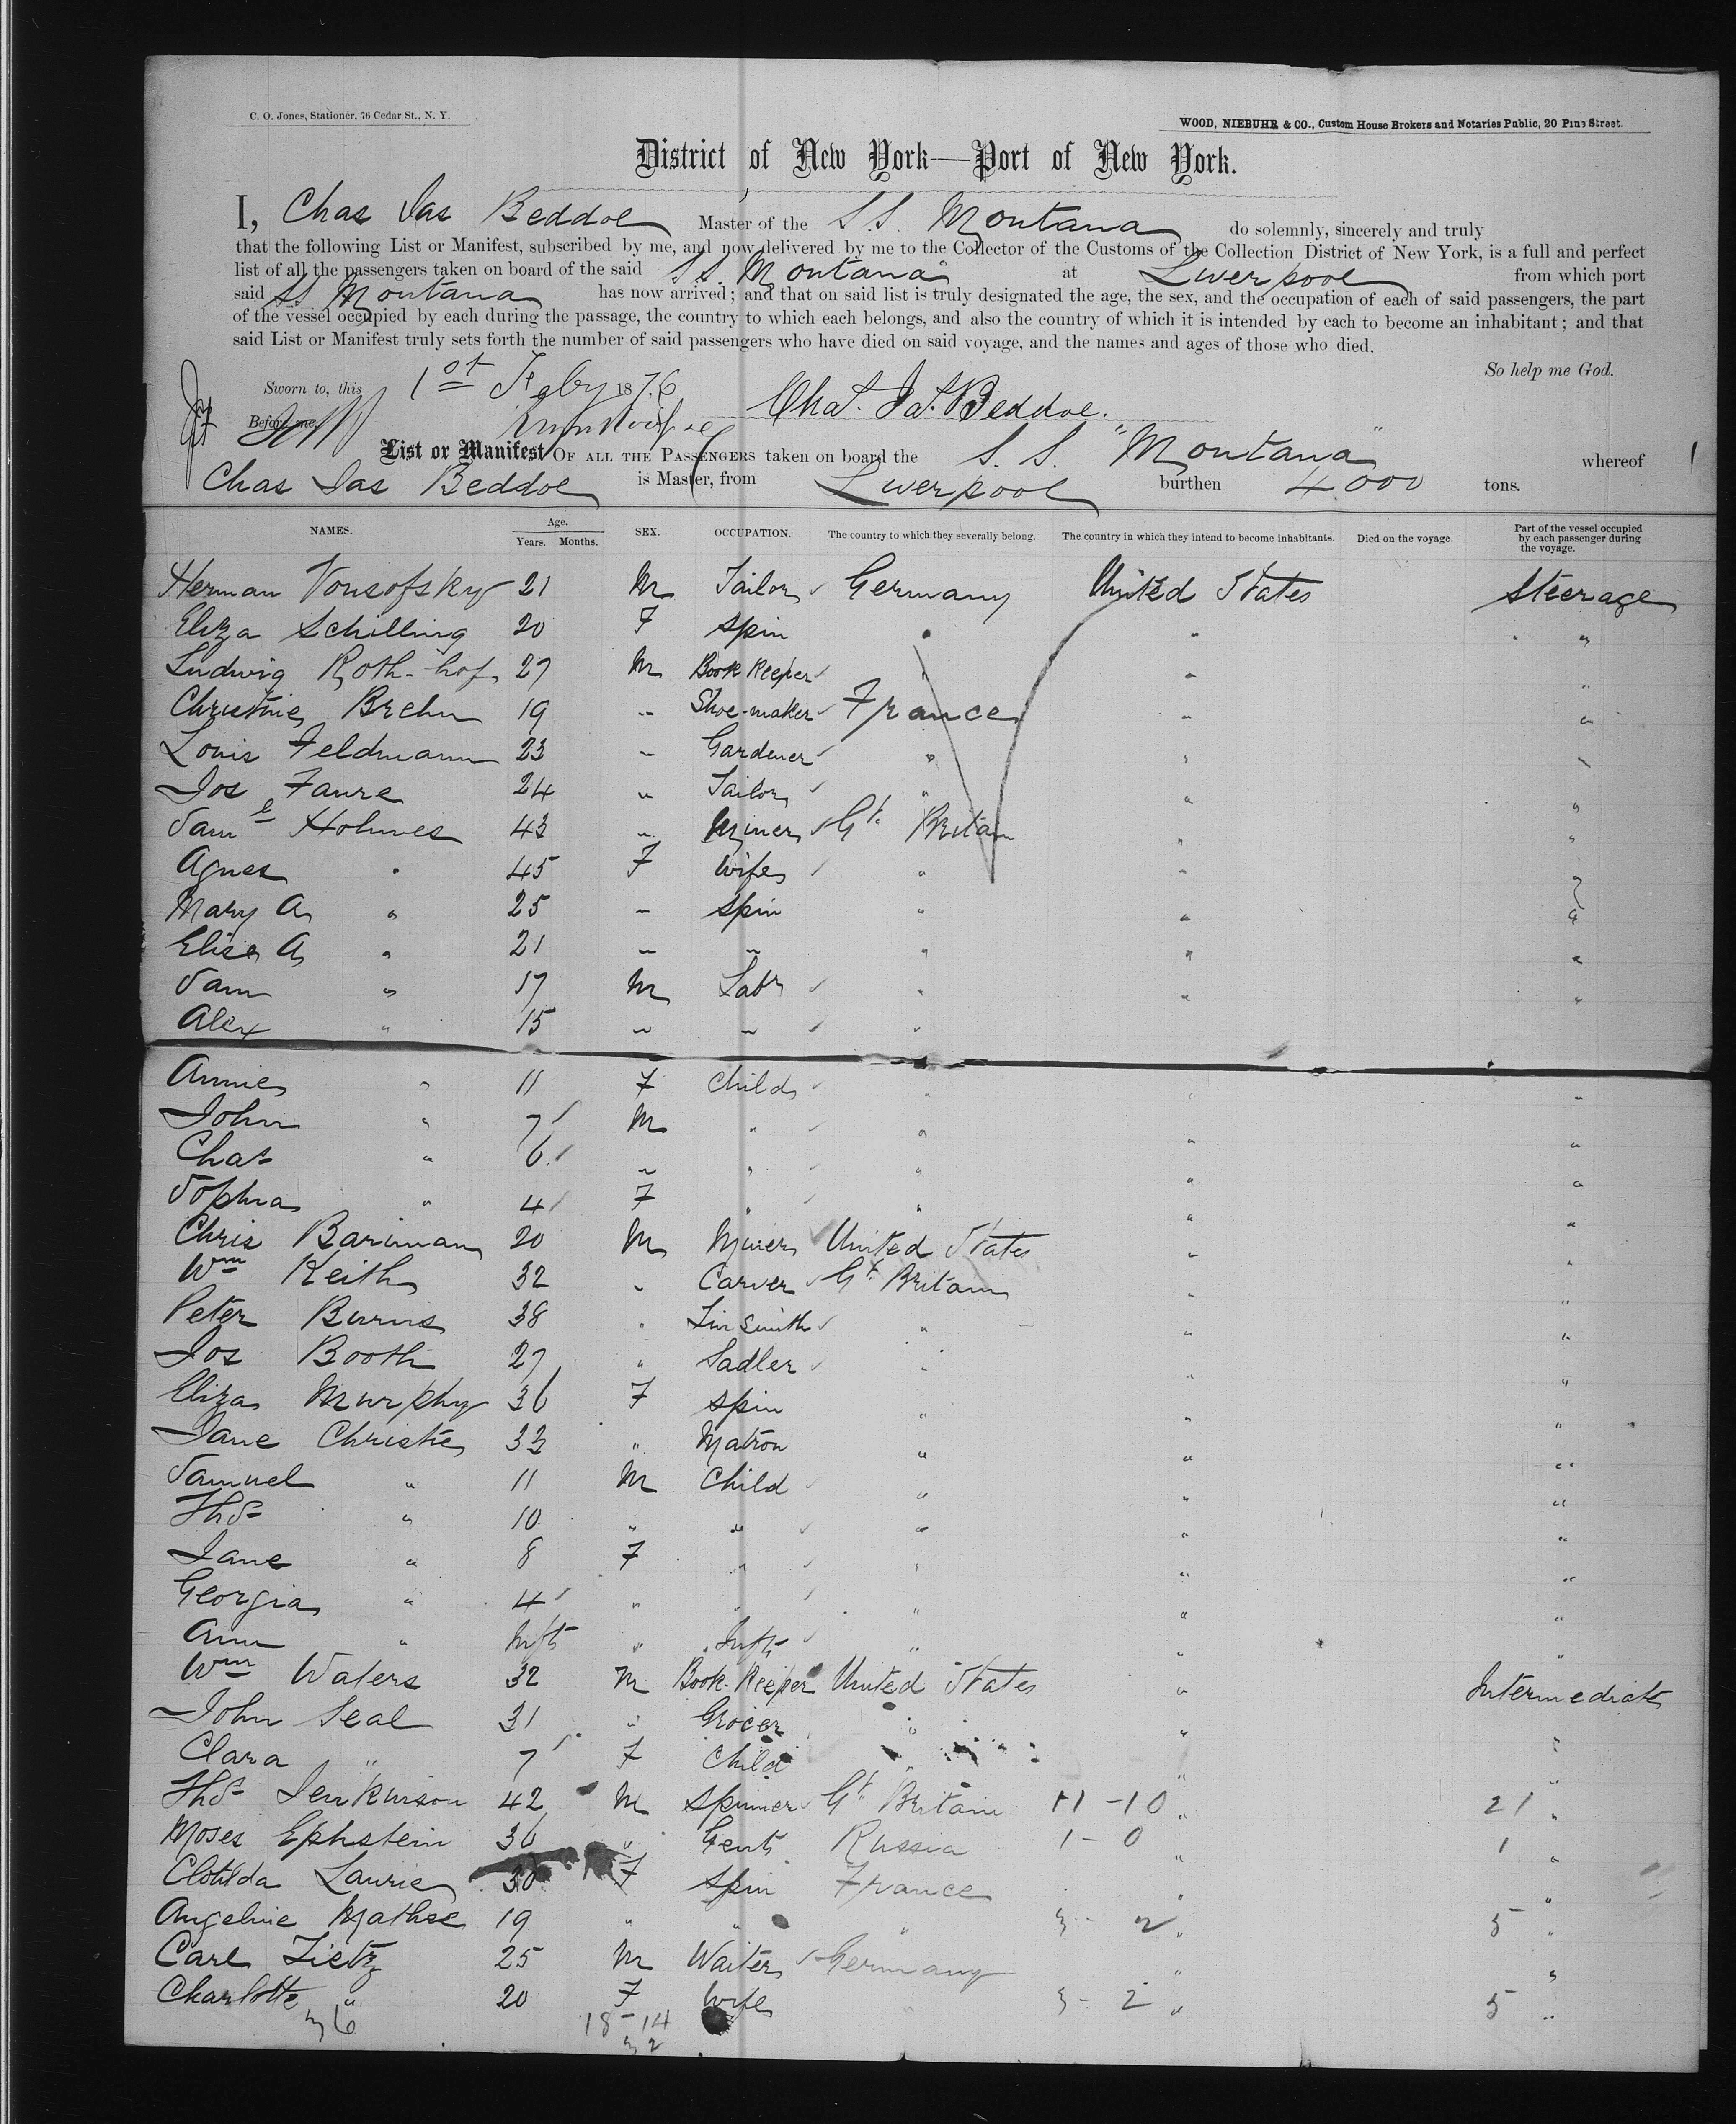 C. O. Jones, Stationer, 76 Cedar St., N. Y.
WOOD, NIEBUHR & CO., Custom House Brokers and Notaries Public, 20 Pine Street.
District of New York—Port of New York.
I, Chas Jas Beddoe Master of the S.S. Montana do solemnly, sincerely and truly
that the following List or Manifest, subscribed by me, and now delivered by me to the Collector of the Customs of the Collection District of New York, is a full and perfect
list of all the passengers taken on board of the said S.S. Montana at Liverpool from which port
said SS Montana has now arrived; and that on said list is truly designated the age, the sex, and the occupation of each of said passengers, the part
of the vessel occupied by each during the passage, the country to which each belongs, and also the country of which it is intended by each to become an inhabitant; and that
said List or Manifest truly sets forth the number of said passengers who have died on said voyage, and the names and ages of those who died.
So help me God.
Sworn to, this 1st Feby 1876 Chas. Jas. Beddoe.
Before me,
List or Manifest OF ALL THE PASSENGERS taken on board the S. S. "Montana" whereof
Chas Jas Beddoe is Master, from Liverpool burthen 4000 tons.
NAMES. Age. Years. Months. SEX. OCCUPATION. The country to which they severally belong. The country in which they intend to become inhabitants. Died on the voyage. Part of the vessel occupied by each passenger during the voyage.
Herman Vonsofsky 21 M Tailor Germany United States Steerage
Eliza Schilling 20 F Spin " " "
Ludwig Roth-hof 27 M Book Keeper " " "
Christine Brehm 19 " Shoe-maker France " "
Louis Feldmann 23 " Gardener " " "
Jos Faure 24 " Tailor " " "
Saml Holmes 43 " Miner Gt. Britain " "
Agnes " 45 F Wife " " "
Mary A " 25 " Spin " " "
Elisa A " 21 " " " " "
Sam " 17 M Labr " " "
Alex " 15 " " " "
Annie " 11 F Child " " "
John " 7 M " " " "
Chas " 6 " " " " "
Sophia " 4 F " " " "
Chris Bariman 20 M Miner United States " "
Wm Keith 32 " Carver Gt. Britain " "
Peter Burns 38 " Tin Smith " " "
Jos Booth 27 " Sadler " " "
Eliza Murphy 36 F Spin " " "
Jane Christie 33 " Matron " " "
Samuel " 11 M Child " " "
Thos " 10 " " " " "
Jane " 8 F " " " "
Georgia " 4 " " " " "
Ann " Inft " Inft " " "
Wm Waters 32 M Book-Keeper United States " Intermediate
John Seal 31 " Grocer " " "
Clara " 7 F Child " " "
Thos Jenkinson 42 M Spinner Gt Britain 11-10 " 21 "
Moses Ephstein 36 " Gent Russia 1-0 " 1 "
Clotilda Laurie 30 F Spin France " "
Angeline Mathee 19 " " " 3-2 " 5 "
Carl Tietz 25 M Waiter Germany " "
Charlotte " 20 F Wife " 3-2 " 5 "
36 18-14
32